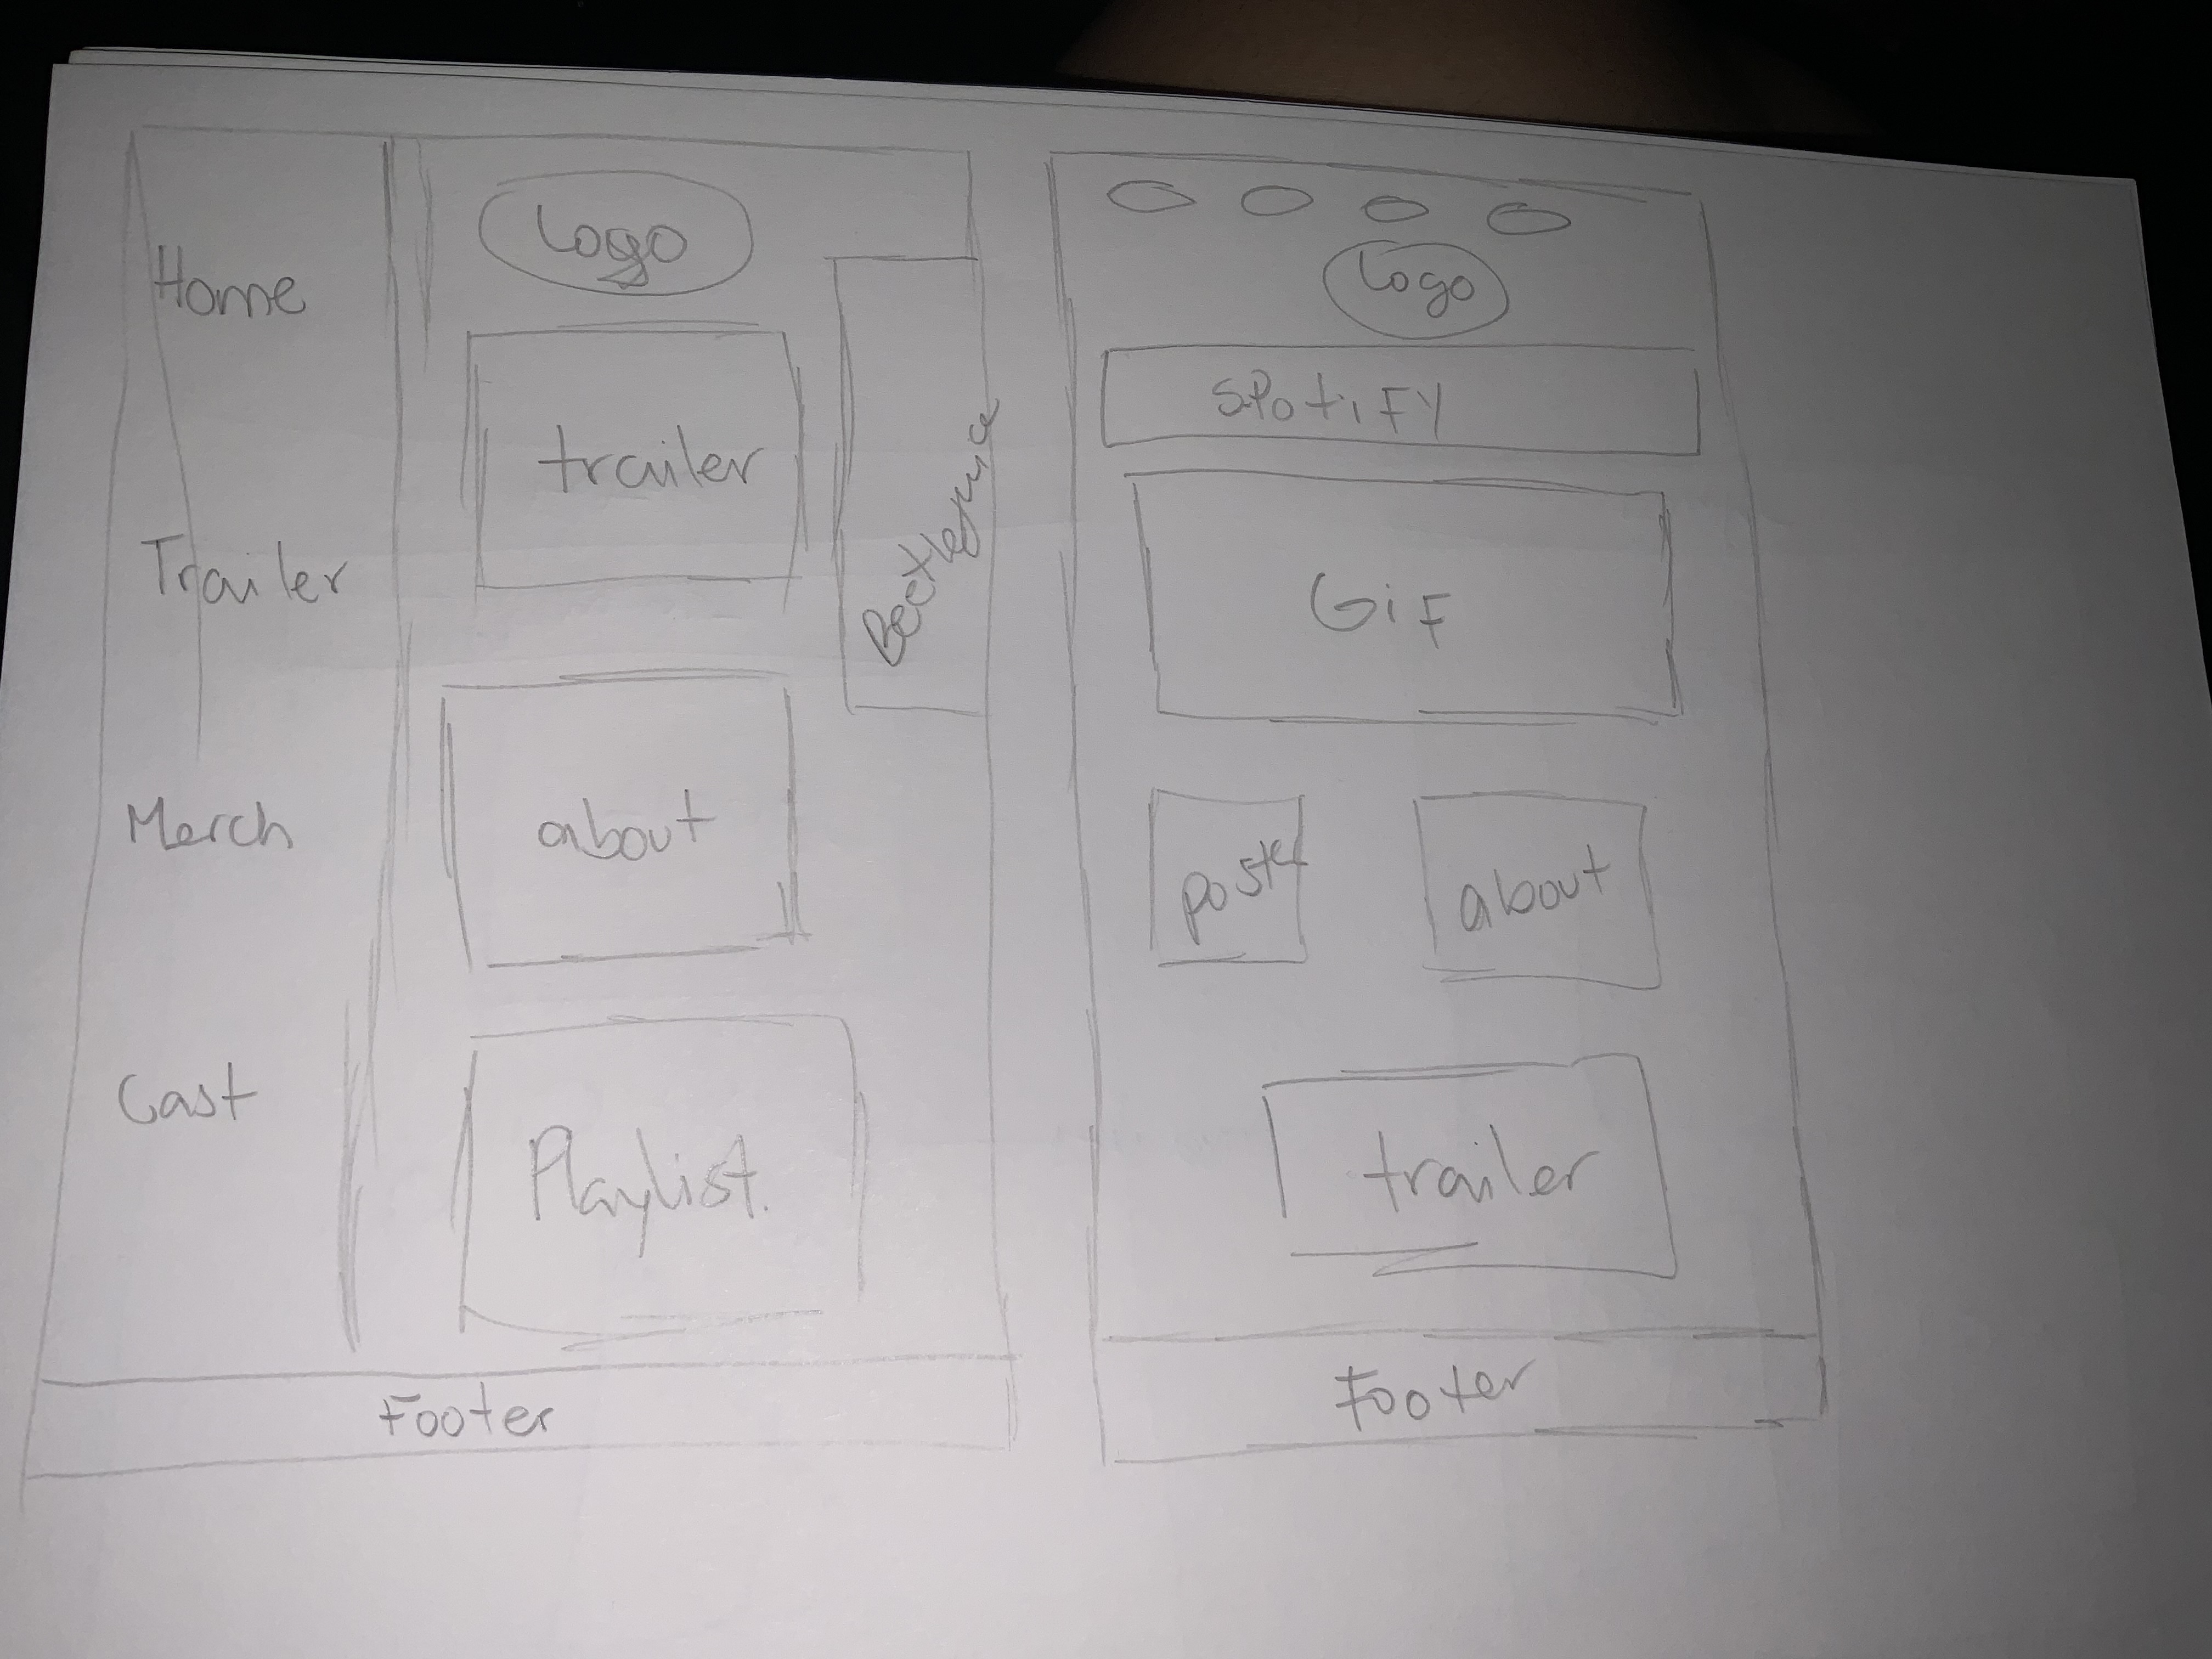 Home
Trailer
Merch
Cast
Logo
trailer
about
Playlist.
Footer
Logo
SPOTiFY
GiF
about
trailer
Footer